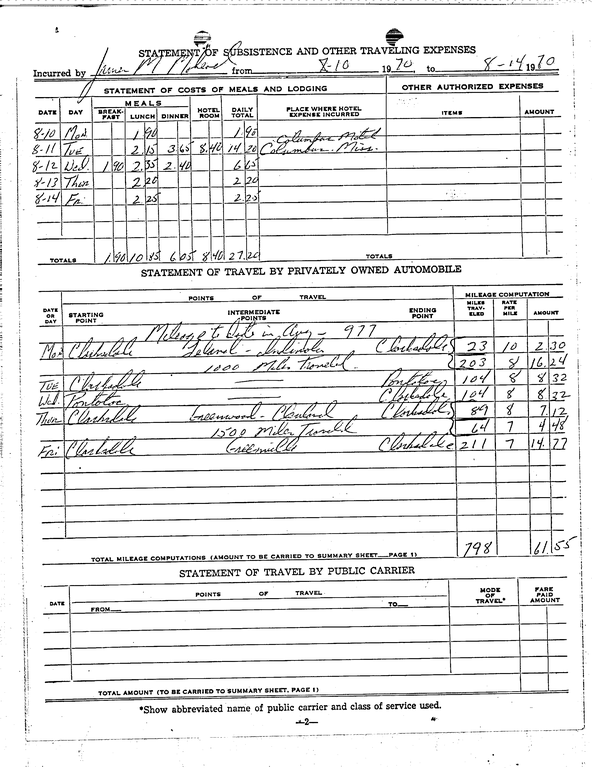 STATEMENT OF SUBSISTENCE AND OTHER TRAVELING EXPENSES
Incurred by M from 8-10 1970 to 8-14 1970
STATEMENT OF COSTS OF MEALS AND LODGING OTHER AUTHORIZED EXPENSES
MEALS
DATE DAY BREAK-FAST LUNCH DINNER HOTEL ROOM DAILY TOTAL PLACE WHERE HOTEL EXPENSE INCURRED ITEMS AMOUNT
8-10 Mon 1 90 1 90 Columbus Motel
8-11 Tue 2 15 3 65 8 40 14 20 Columbus. Miss.
8-12 Wed. 1 90 2 35 2 40 6 65
8-13 Thur 2 20 2 20
8-14 Fri 2 25 2 25
TOTALS 1 90 10 85 6 05 8 40 27 20 TOTALS
STATEMENT OF TRAVEL BY PRIVATELY OWNED AUTOMOBILE
POINTS OF TRAVEL MILEAGE COMPUTATION
DATE OR DAY STARTING POINT INTERMEDIATE POINTS ENDING POINT MILES TRAV-ELED RATE PER MILE AMOUNT
Mileage to Date in Aug - 977
Mon Clarksdale - Indianola Clarksdale 23 10 2 30
1000 Miles Traveled 203 8 16 24
Tue Clarksdale Pontotoc 104 8 8 32
Wed. Pontotoc Clarksdale 104 8 8 32
Thur Clarksdale Greenwood - Cleveland Clarksdale 89 8 7 12
1500 Miles Traveled 64 7 4 48
Fri Clarksdale Greenville Clarksdale 211 7 14 77
TOTAL MILEAGE COMPUTATIONS (AMOUNT TO BE CARRIED TO SUMMARY SHEET PAGE 1) 798 61 55
STATEMENT OF TRAVEL BY PUBLIC CARRIER
DATE POINTS OF TRAVEL MODE OF TRAVEL* FARE PAID AMOUNT
FROM TO
TOTAL AMOUNT (TO BE CARRIED TO SUMMARY SHEET, PAGE 1)
*Show abbreviated name of public carrier and class of service used.
-2-